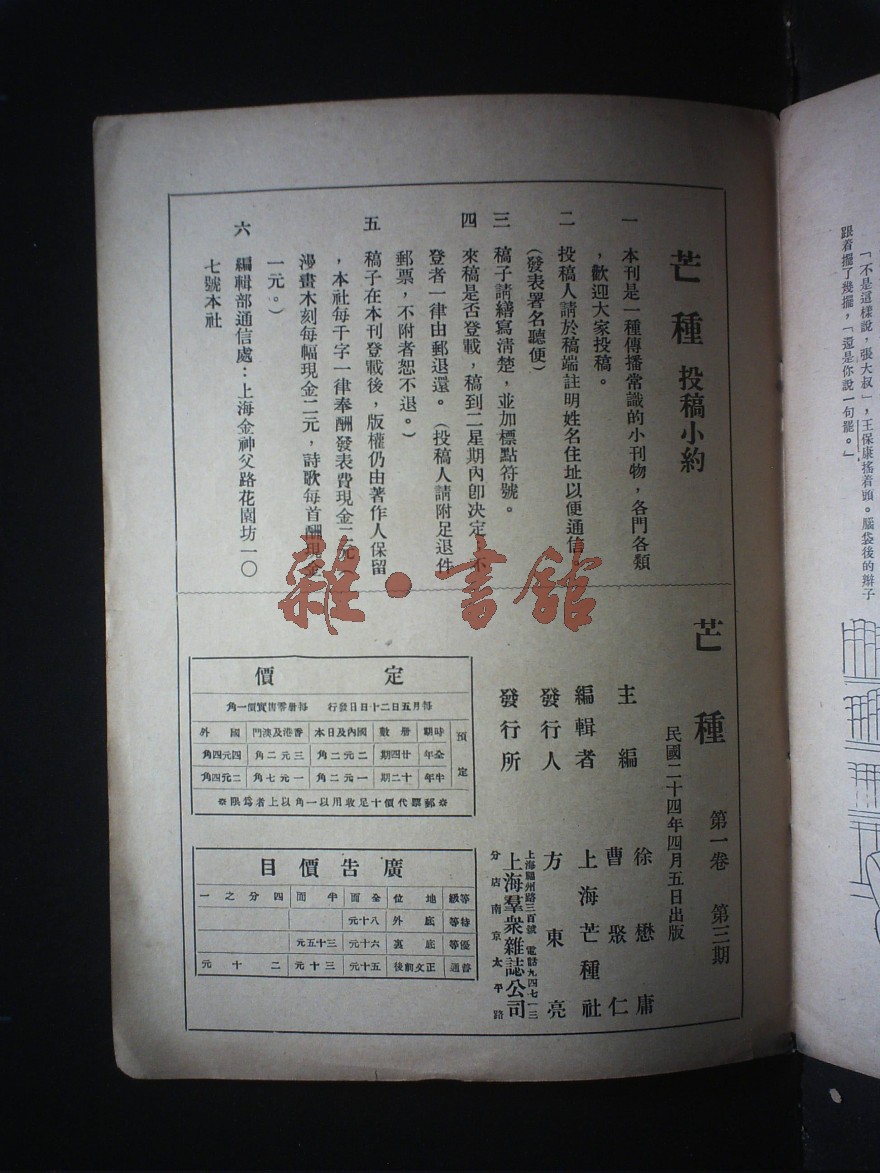 芒種 投稿小約
一 本刊是一種傳播常識的小刊物，各門各類
，歡迎大家投稿。
二 投稿人請於稿端註明姓名住址以便通信。
（發表署名聽便）
三 稿子請繕寫清楚，並加標點符號。
四 來稿是否登載，稿到二星期內卽決定，不
登者一律由郵退還。（投稿人請附足退件
郵票，不附者恕不退。）
五 稿子在本刊登載後，版權仍由著作人保留
，本社每千字一律奉酬發表費現金二元（
漫畫木刻每幅現金二元，詩歌每首酬現金
一元。）
六 編輯部通信處：上海金神父路花園坊一〇
七號本社
芒種 第一卷 第三期
民國二十四年四月五日出版
主編 徐懋庸
曹聚仁
編輯者 上海芒種社
發行人 方東亮
發行所
上海福州路三百號 電話九四七一三
上海羣衆雜誌公司
分店南京太平路
定價
每月五日二十日發行 每册零售實價一角
預定
時期 册數 國內及日本 香港及澳門 國外
全年 廿四期 二元二角 三元二角 四元四角
半年 十二期 一元二角 一元七角 二元四角
郵票代價十足收用以一角以上者爲限
廣告價目
等級 地位 全面 半面 四分之一
特等 底外 八十元
優等 底裏 六十元 三十五元
普通 正文前後 五十元 三十元 二十元
雜·書館
「不是這樣說，張大叔」，王保康搖着頭。腦袋後的辮子
跟着擺了幾擺，「還是你說一句罷。」